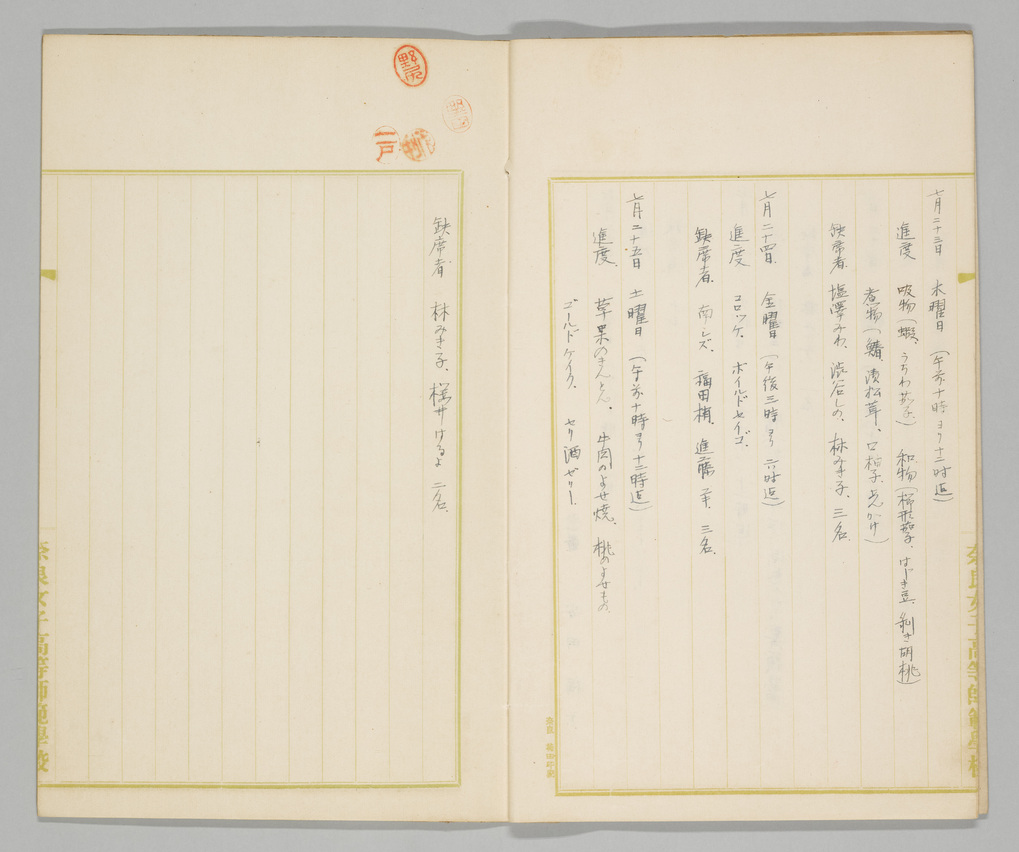 七月二十三日 木曜日 (午前十時ヨリ十二時迄)
進度 吸物(蝦、うちわ茄子) 和物(櫛形茄子、はじき豆、剥き胡桃)
煮物(鯖、漬松茸、口柚子、あんかけ)
欽席者 塩澤みわ、渋谷しの、林みき子、三名
七月二十四日 金曜日 (午後三時ヨリ六時迄)
進度 コロッケ、ボイルドセイゴ、
欽席者 南シズ、福田梢、進藤 三名
七月二十五日 土曜日 (午前十時ヨリ十二時迄)
進度 草果のきんとん、牛肉のよせ焼、桃のよせもの、
ゴールドケイク、セリ酒ゼリー、
奈良女子高等師範學校
欽席者 林みき子、桜井けるよ 二名
野尻
一戸
奈良女子高等師範學校